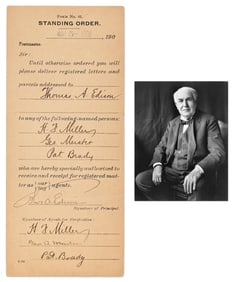 Form No. 6.
STANDING ORDER.
190
Postmaster:
Sir:
Until otherwise ordered you will
please deliver registered letters and
parcels addressed to
Thomas A Edison
to any of the following-named persons:
H. F. Miller
Geo Meister
Pat Brady
who are hereby specially authorized to
receive and receipt for registered mat-
ter as agents.
Signature of Principal.
Signature of Agents for Verification:
H. F. Miller
Pat Brady